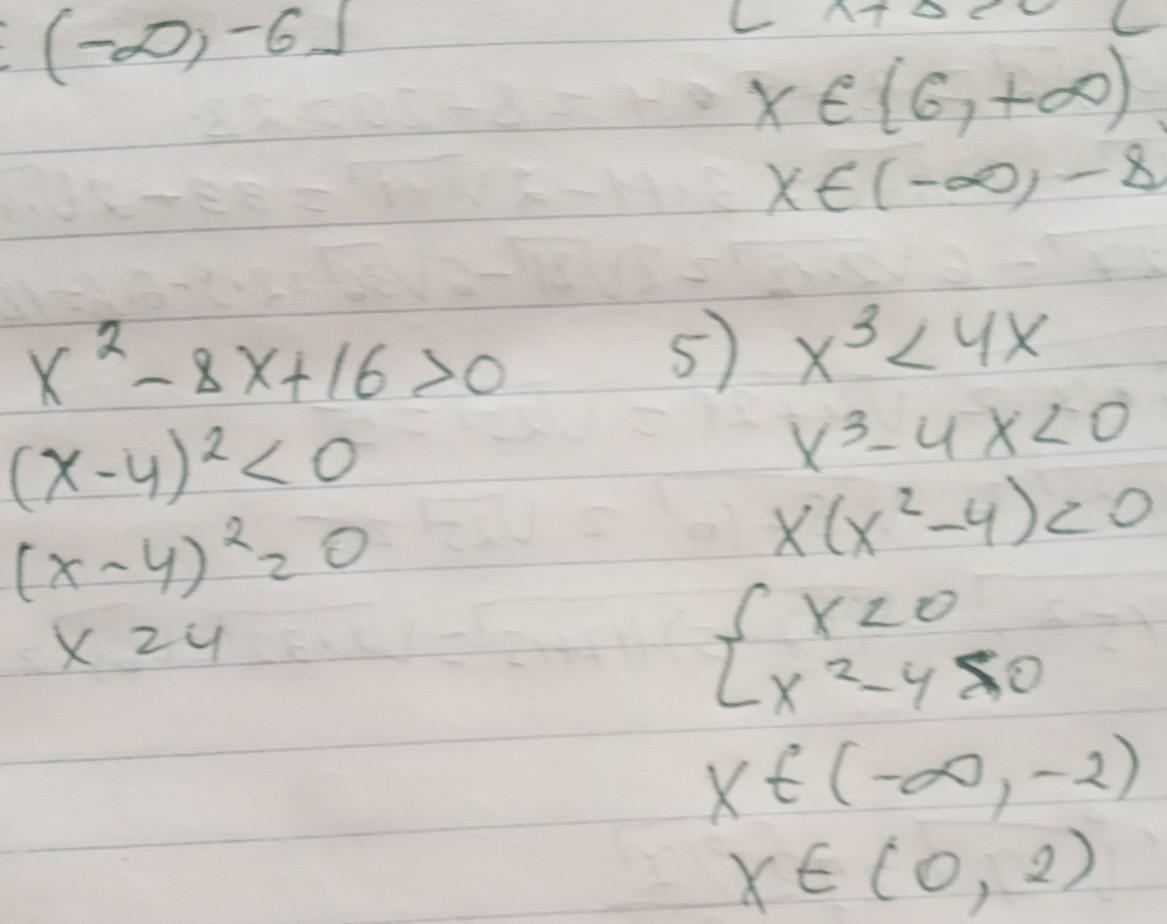 (-∞, -6]
x ∈ (6, +∞)
x ∈ (-∞, -8
x² - 8x + 16 > 0
(x-4)² < 0
(x-4)² = 0
x = 4
5) x³ < 4x
x³ - 4x < 0
x(x² - 4) < 0
{ x < 0
x² - 4 0
x ∈ (-∞, -2)
x ∈ (0, 2)